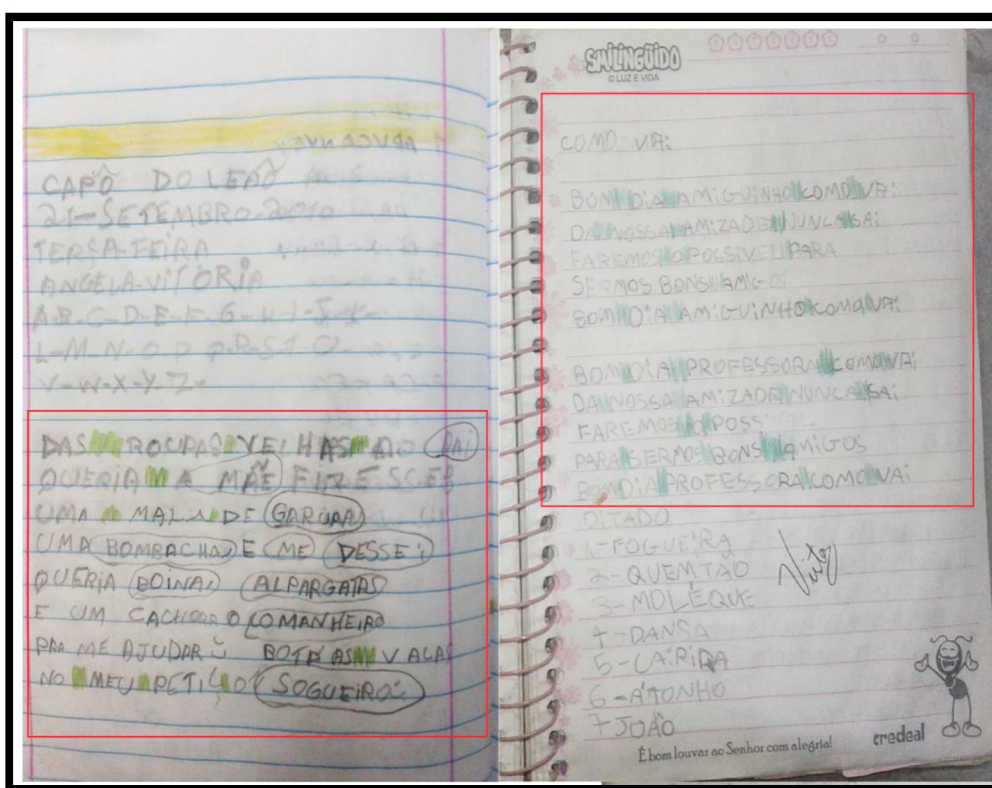 CAPÔ DO LEAÕ
21-SETEMBRO-2010
TERCA-FEIRA
ANGELA-ViTÓRIA
A-B-C-D-E-F-G-H-I-J-K-
L-M-N-O-P-Q-R-S-T-U-
V-W-X-Y-Z-
DAS ROUPAS VELHAS DO PAi
QUERiA A MÃE FIZESSES
UMA MALA DE GAROPA
UMA BOMBACHA E ME DESSE
QUERiA BOINA ALPARGATAS
E UM CACHORRO COMANHEIRO
PRA ME AJUDAR BOTA AS VACA
NO MEU PETIÇO SOGUEIRO
SMILINGÜIDO
© LUZ E VIDA
COMO VAi
BOM DiA AMiGUiNHO COMO VAi
DA NOSSA AMIZADE NUNCA SAi
FAREMOS O POSSIVEL PARA
SERMOS BONS AMiG
BOM DiA AMiGUiNHO COMO VAi
BOM DiA PROFESSORA COMO VAi
DA NOSSA AMIZADE NUNCA SAi
FAREMOS O POSS
PARA SERMOS BONS AMiGOS
BOM DiA PROFESSORA COMO VAi
DITADO
1-FOGUEiRA
2-QUEMTÃO
3-MOLEQUE
4-DANSA
5-CAiPiRA
6-ATONHO
7 JOÃO
É bom louvar ao Senhor com alegria!
credeal